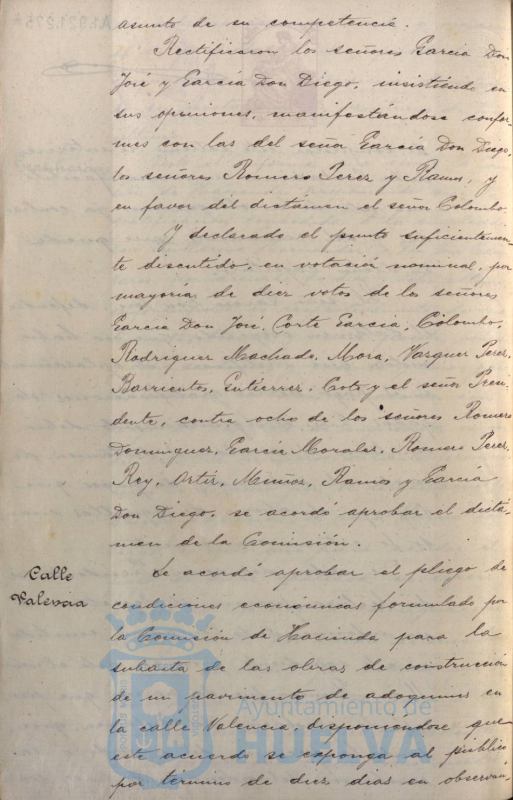 asunto de su competencia.
Rectificaron los señores García Don
José y García Don Diego, insistiendo en
sus opiniones, manifestándose confor-
mes con las del señor García Don Diego,
los señores Romero Perez y Ramos, y
en favor del dictámen el señor Colombo.
Y declarado el punto suficientemen-
te discutido, en votación nominal, por
mayoría de diez votos de los señores
García Don José, Corte García, Colombo,
Rodriguez Machado, Mora, Vazquez Perez,
Barrientos, Gutierrez, Coto y el señor Presi-
dente, contra ocho de los señores Romero
Dominguez, García Morales, Romero Perez,
Rey, Ortiz, Muñoz, Ramos y García
Don Diego, se acordó aprobar el dictá-
men de la Comisión.
Calle
Valencia
Se acordó aprobar el pliego de
condiciones económicas formulado por
la Comisión de Hacienda para la
subasta de las obras de construcción
de un pavimento de adoquines en
la calle Valencia, disponiendose que
este acuerdo se exponga al público
por término de diez dias en observan-
Ayuntamiento de
HUELVA